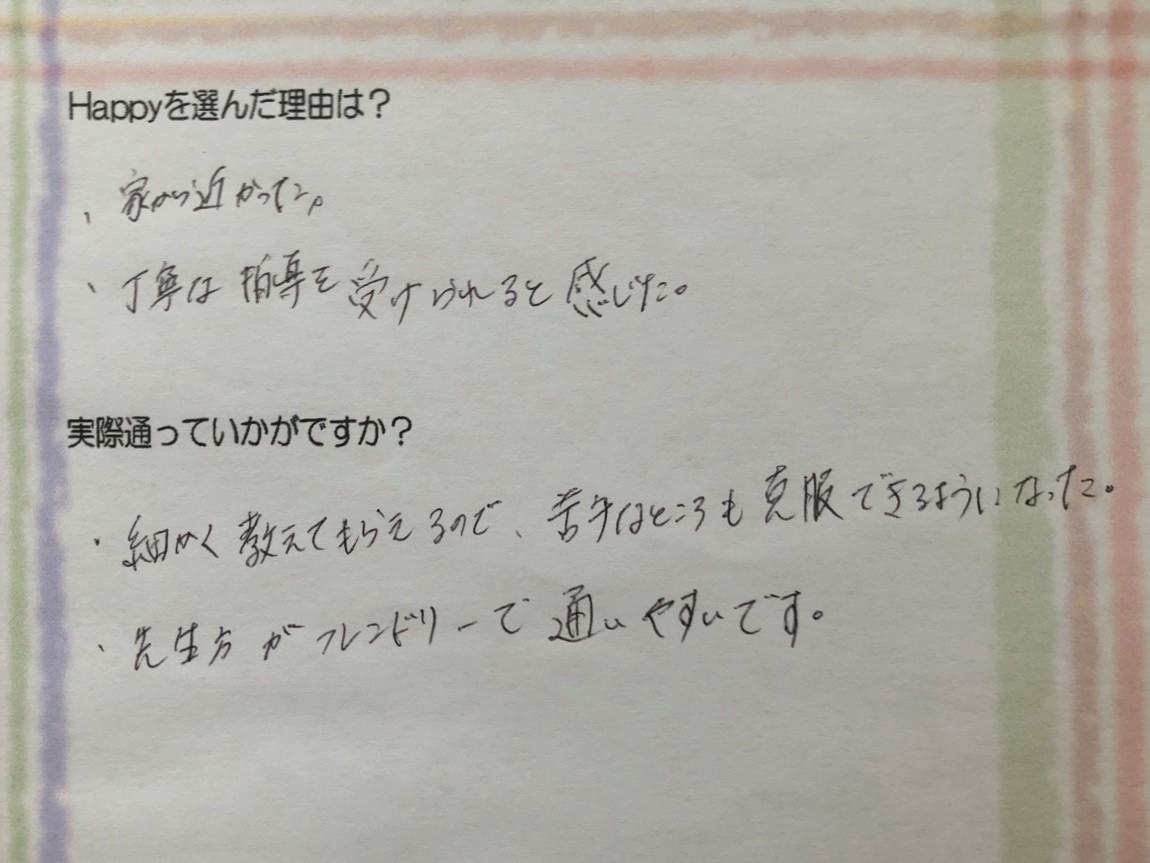 Happyを選んだ理由は？
・家から近かった。
・丁寧な指導を受けられると感じた。
実際通っていかがですか？
・細かく教えてもらえるので、苦手なところも克服できるようになった。
・先生方がフレンドリーで通いやすいです。